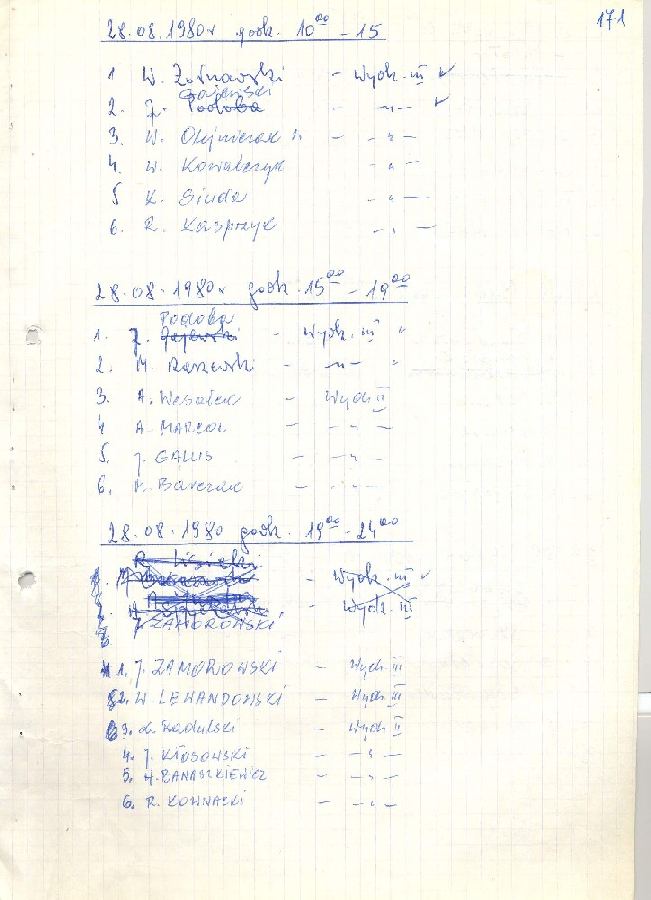 171
28.08.1980r godz. 10⁰⁰ - 15
1 W. Żółnowski - Wydz. III ✓
Gajewski
2. J. Podoba - " - ✓
3. W. Olejniczak - " -
4. W. Kowalczyk - " -
5 K. Siuda - " -
6. R. Kasprzyk - " -
28.08.1980r godz. 15⁰⁰ - 19⁰⁰
Podoba
1. J. Gajewski - Wydz. III "
2. M. Raszewski - " - "
3. A. Wesołek - Wydz II
4 A. MARCOL - " -
5. J. GALLIS - " -
6. Barczak - " -
28.08.1980 godz. 19⁰⁰ - 24⁰⁰
- Wydz. III ✓
- Wydz. III
J. ZAMOROWSKI
1. J. ZAMOROWSKI - Wydz III
2. W. LEWANDOWSKI - Wydz III
3. Radulski - Wydz II
4. J. KŁOSOWSKI - " -
5. H. BANASZKIEWICZ - " -
6. R. KOWNACKI - " -